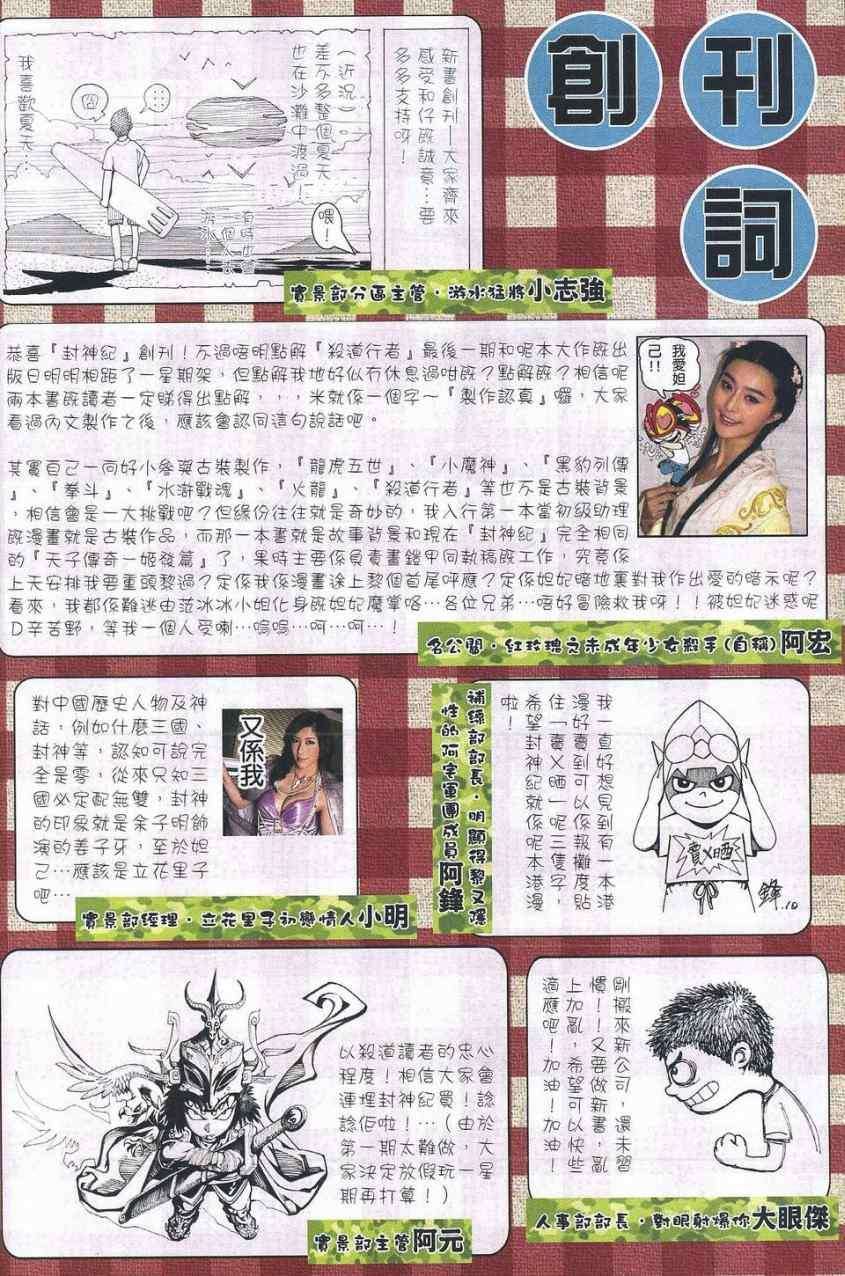 創刊詞
新書創刊—大家齊來
感受和仔既誠意…要
多多支持呀！
（近況）。
差不多整個夏天
也在沙灘中渡過！
我喜歡夏天…
囧
喂！
有時也會
一個人去
游水！
實景部分區主管．游水猛將小志強
恭喜『封神紀』創刊！不過唔明點解『殺道行者』最後一期和呢本大作既出
版日明明相距了一星期架，但點解我地好似冇休息過咁既？點解既？相信呢
兩本書既讀者一定睇得出點解，，，米就係一個字～『製作認真』囉，大家
看過內文製作之後，應該會認同這句說話吧。
其實自己一向好小參與古裝製作，『龍虎五世』、『小魔神』、『黑豹列傳
』、『拳斗』、『水滸戰魂』、『火龍』、『殺道行者』等也不是古裝背景
，相信會是一大挑戰吧？但緣份往往就是奇妙的，我入行第一本當初級助理
既漫畫就是古裝作品，而那一本書就是故事背景和現在『封神紀』完全相同
的『天子傳奇—姬發篇』了，果時主要係負責畫鎧甲同執稿既工作，究竟係
上天安排我要重頭黎過？定係我係漫畫途上黎個首尾呼應？定係妲妃暗地裏對我作出愛的暗示呢？
看來，我都係難逃由范冰冰小姐化身既妲妃魔掌咯…各位兄弟…唔好冒險救我呀！！被妲妃迷惑呢
D辛苦野，等我一個人受喇…嗚嗚…呵…呵…！
我愛妲
己！！
名公關．紅玫瑰之未成年少女殺手（自稱）阿宏
對中國歷史人物及神
話，例如什麼三國、
封神等，認知可說完
全是零，從來只知三
國必定配無雙，封神
的印象就是余子明飾
演的姜子牙，至於妲
己…應該是立花里子
吧…
又係我
實景部經理．立花里子初戀情人小明
補綠部部長．明顯得黎又隱
性的阿宏軍團成員阿鋒
我一直好想見到有一本港
漫好賣到可以係報攤度貼
住「賣乂晒」呢三隻字，
希望封神紀就係呢本港漫
啦！
賣乂晒
鋒.10
以殺道讀者的忠心
程度！相信大家會
連埋封神紀買！諗
諗佢啦！…（由於
第一期太難做，大
家決定放假玩一星
期再打算！）
實景部主管阿元
剛搬來新公司，還未習
慣！！又要做新書，亂
上加亂，希望可以快些
適應吧！加油！加油！
人事部部長．對眼射爆你大眼傑